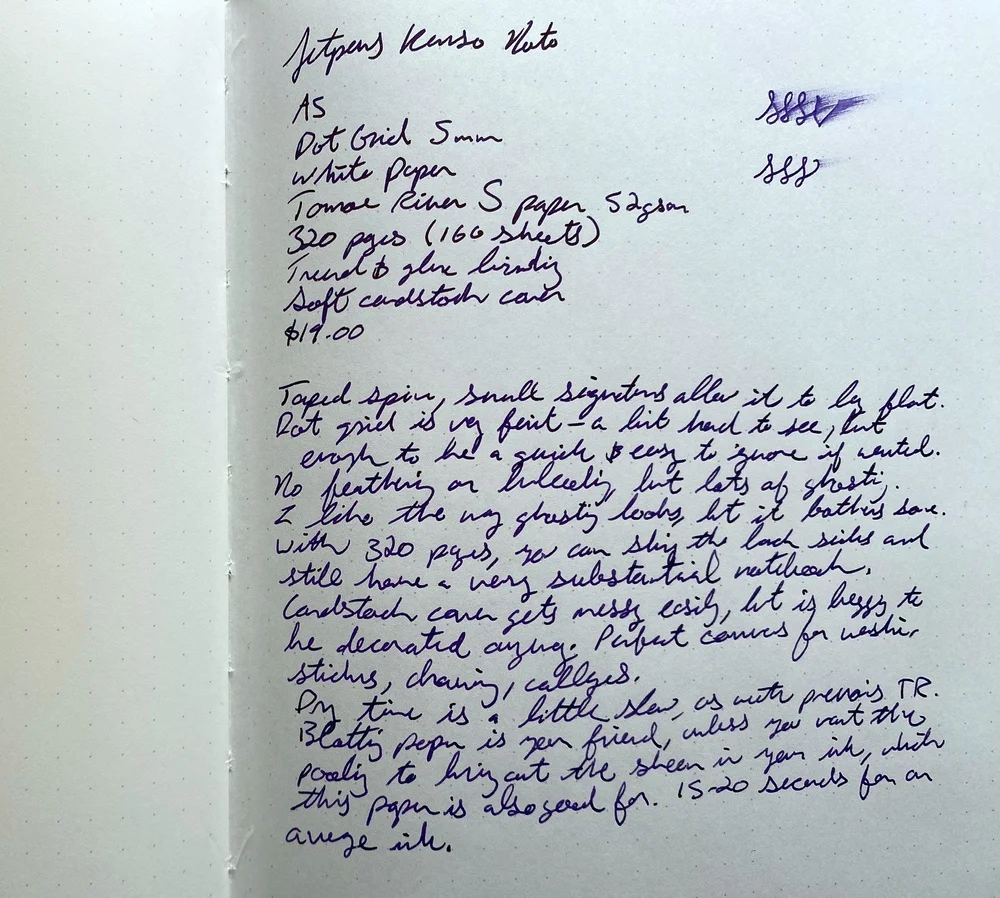 Jetpens Kanso Noto
A5
Dot Grid 5mm
White Paper
Tomoe River S paper 52gsm
320 pages (160 sheets)
Thread & glue binding
Soft cardstock cover
$19.00
Taped spine, small signatures allow it to lay flat.
Dot grid is very faint - a bit hard to see, but
enough to be a guide & easy to ignore if wanted.
No feathering or bleeding, but lots of ghosting.
I like the way ghosting looks, but it bothers some.
With 320 pages, you can skip the back sides and
still have a very substantial notebook.
Cardstock cover gets messy easily, but is begging to
be decorated anyway. Perfect canvas for washi,
stickers, drawing, collages.
Dry time is a little slow, as with previous TR.
Blotting paper is your friend, unless you want the
pooling to bring out the sheen in your ink, which
this paper is also good for. 15-20 seconds for an
average ink.